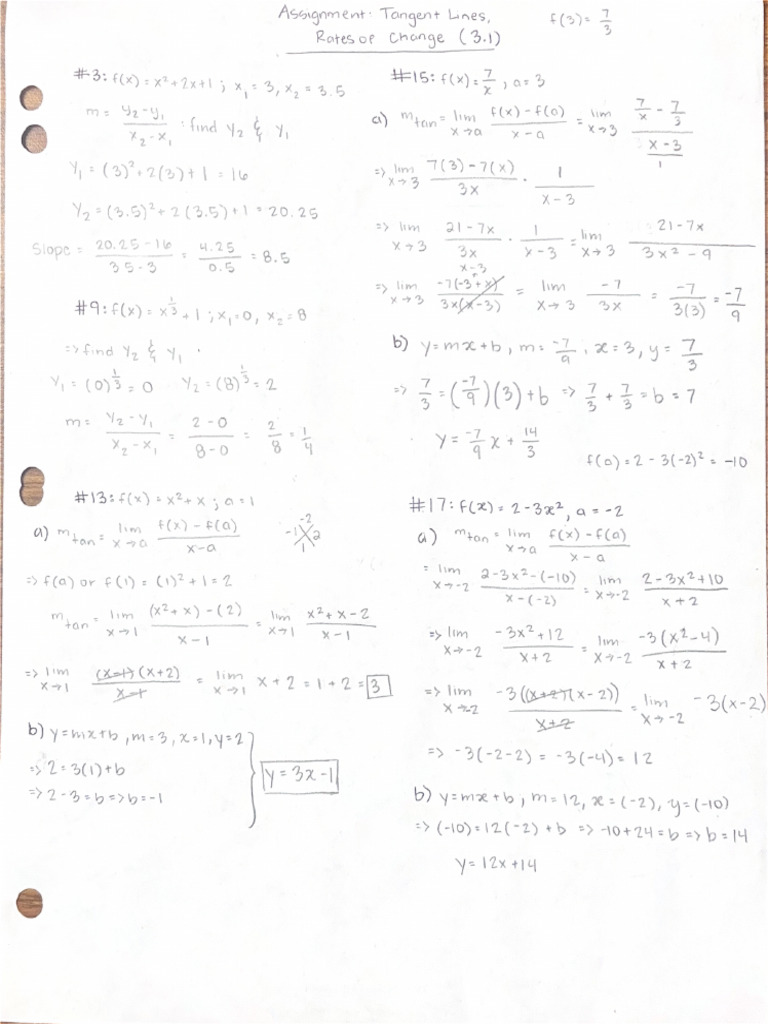 Assignment: Tangent Lines,
Rates of Change (3.1)
f(3) = 7/3
#3: f(x) = x² + 2x + 1 ; x₁ = 3, x₂ = 3.5
m = (y₂ - y₁)/(x₂ - x₁) : find y₂ & y₁
y₁ = (3)² + 2(3) + 1 = 16
y₂ = (3.5)² + 2(3.5) + 1 = 20.25
Slope = (20.25 - 16)/(3.5 - 3) = 4.25/0.5 = 8.5
#9: f(x) = x^(1/3) + 1 ; x₁ = 0, x₂ = 8
=> find y₂ & y₁
y₁ = (0)^(1/3) = 0 y₂ = (8)^(1/3) = 2
m = (y₂ - y₁)/(x₂ - x₁) = (2 - 0)/(8 - 0) = 2/8 = 1/4
#13: f(x) = x² + x ; a = 1
a) m_tan = lim x→a (f(x) - f(a))/(x - a)
-2
-1 2
1
=> f(a) or f(1) = (1)² + 1 = 2
m_tan = lim x→1 ((x² + x) - (2))/(x - 1) = lim x→1 (x² + x - 2)/(x - 1)
=> lim x→1 ((x-1)(x+2))/(x-1) = lim x→1 x + 2 = 1 + 2 = 3
b) y = mx + b, m = 3, x = 1, y = 2
=> 2 = 3(1) + b
=> 2 - 3 = b => b = -1
y = 3x - 1
#15: f(x) = 7/x, a = 3
a) m_tan = lim x→a (f(x) - f(a))/(x - a) = lim x→3 (7/x - 7/3)/((x - 3)/1)
=> lim x→3 (7(3) - 7(x))/3x · 1/(x - 3)
=> lim x→3 (21 - 7x)/3x · 1/(x - 3) = lim x→3 (21 - 7x)/(3x² - 9)
x-3
=> lim x→3 (-7(-3 + x))/(3x(x - 3)) = lim x→3 -7/3x = -7/3(3) = -7/9
b) y = mx + b, m = -7/9, x = 3, y = 7/3
=> 7/3 = (-7/9)(3) + b => 7/3 + 7/3 = b = 7
y = -7/9 x + 14/3
f(a) = 2 - 3(-2)² = -10
#17: f(x) = 2 - 3x², a = -2
a) m_tan = lim x→a (f(x) - f(a))/(x - a)
= lim x→-2 (2 - 3x² - (-10))/(x - (-2)) = lim x→-2 (2 - 3x² + 10)/(x + 2)
=> lim x→-2 (-3x² + 12)/(x + 2) = lim x→-2 (-3(x² - 4))/(x + 2)
=> lim x→-2 (-3((x+2)(x-2)))/(x+2) = lim x→-2 -3(x-2)
=> -3(-2-2) = -3(-4) = 12
b) y = mx + b, m = 12, x = (-2), y = (-10)
=> (-10) = 12(-2) + b => -10 + 24 = b => b = 14
y = 12x + 14